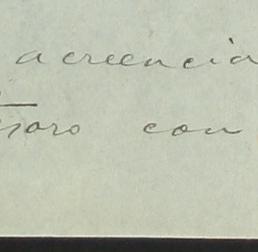 acreencia
soro con